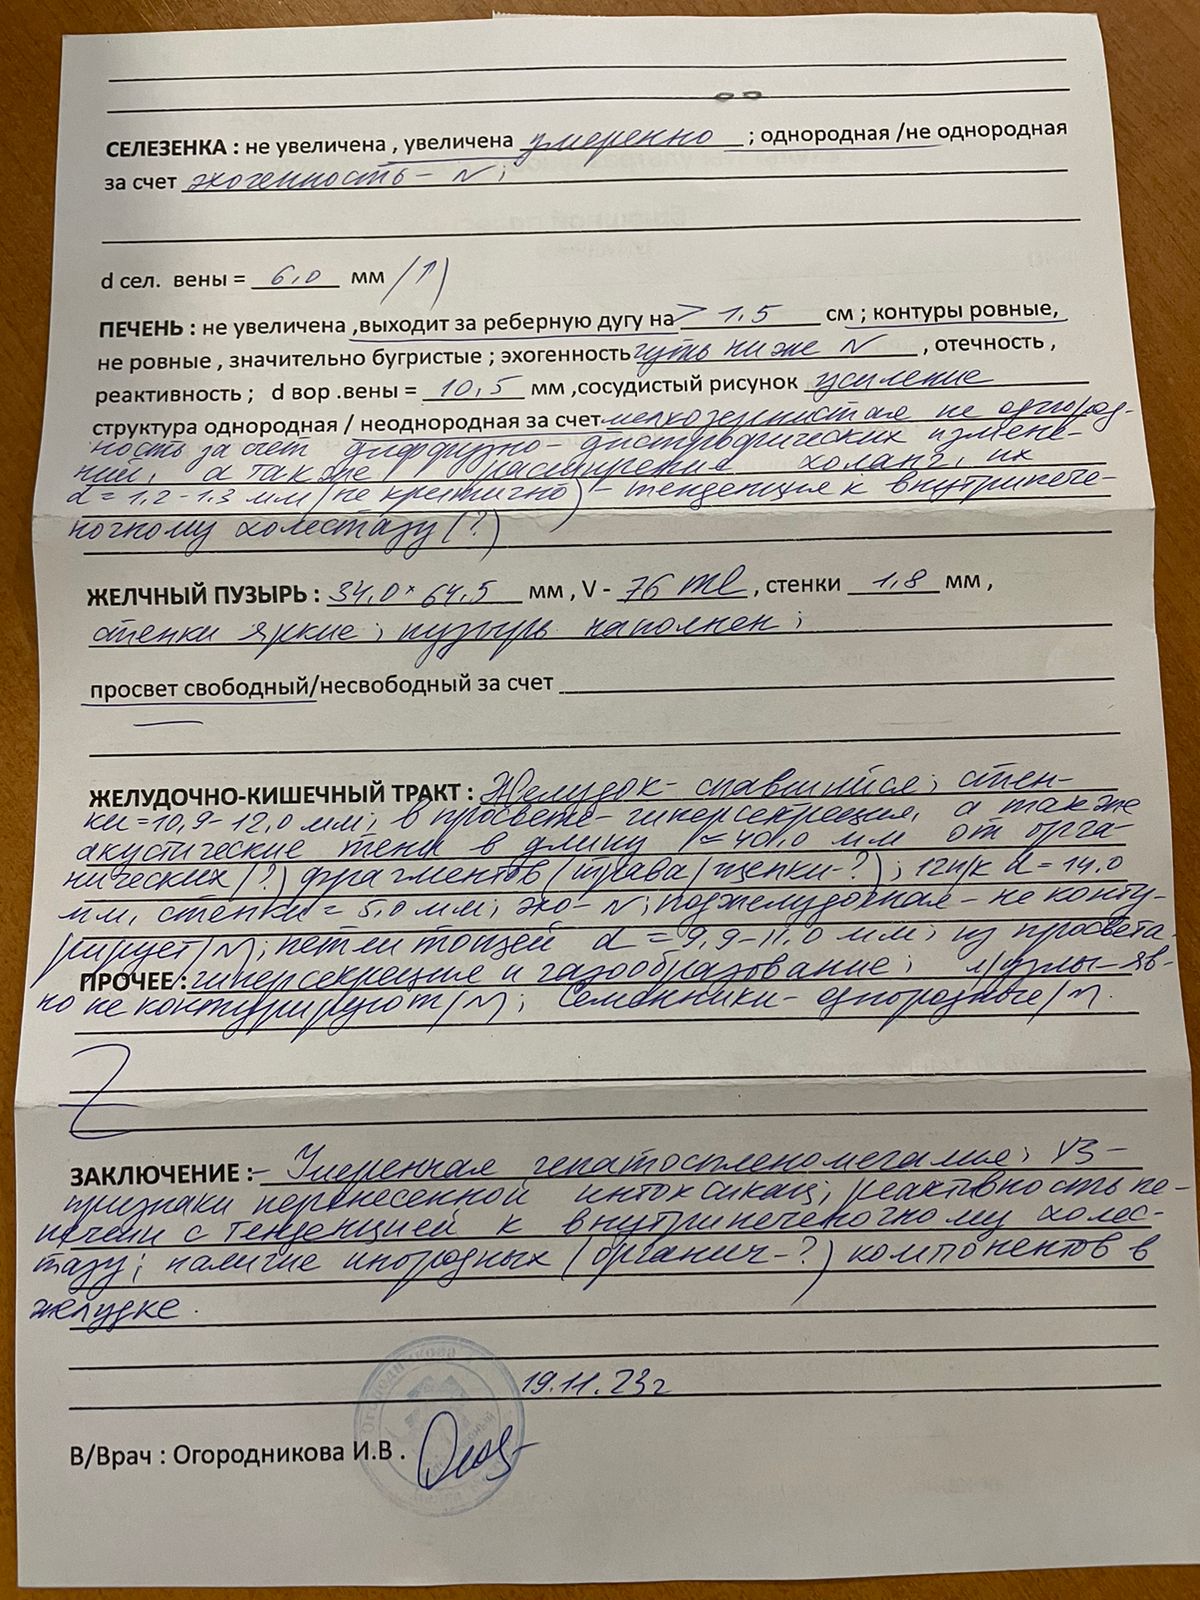 СЕЛЕЗЕНКА : не увеличена , увеличена умеренно ; однородная /не однородная
за счет эхогенность - N ;
d сел. вены = 6,0 мм /↑/
ПЕЧЕНЬ : не увеличена ,выходит за реберную дугу на > 1,5 см ; контуры ровные,
не ровные , значительно бугристые ; эхогенность чуть ниже N , отечность ,
реактивность ; d вор .вены = 10,5 мм ,сосудистый рисунок усиление
структура однородная / неоднородная за счет мелкозернистая не однород-
ность за счет диффузно - дистрофических измене-
ний, а также расширение холанг, их
d = 1,2 - 1,3 мм /не критично/ - тенденция к внутрипече-
ночному холестазу (?)
ЖЕЛЧНЫЙ ПУЗЫРЬ : 34,0 × 64,5 мм , V - 76 ml , стенки 1,8 мм ,
стенки яркие ; пузырь наполнен ;
просвет свободный/несвободный за счет
ЖЕЛУДОЧНО-КИШЕЧНЫЙ ТРАКТ : Желудок - спавшийся ; стен-
ки = 10,9 - 12,0 мм ; в просвете - гиперсекреция, а также
акустические тени в длину ≈ 40,0 мм от орга-
нических (?) фрагментов (трава/щепки - ?) ; 12п/к d = 14,0
мм, стенки = 5,0 мм ; эхо - N ; поджелудочная - не конту-
рирует /N/ ; петли тощей d = 9,9 - 11,0 мм ; из просвета -
ПРОЧЕЕ : гиперсекреция и газообразование ; л/узлы - яв-
но не контурируют /N/ ; Семенники - однородные /N.
ЗАКЛЮЧЕНИЕ : - Умеренная гепатоспленомегалия ; УЗ -
признаки перенесенной интоксикац ; реактивность пе-
чени с тенденцией к внутрипеченочному холес-
тазу ; наличие инородных (органич - ?) компонентов в
желудке .
19.11.23г
В/Врач : Огородникова И.В .